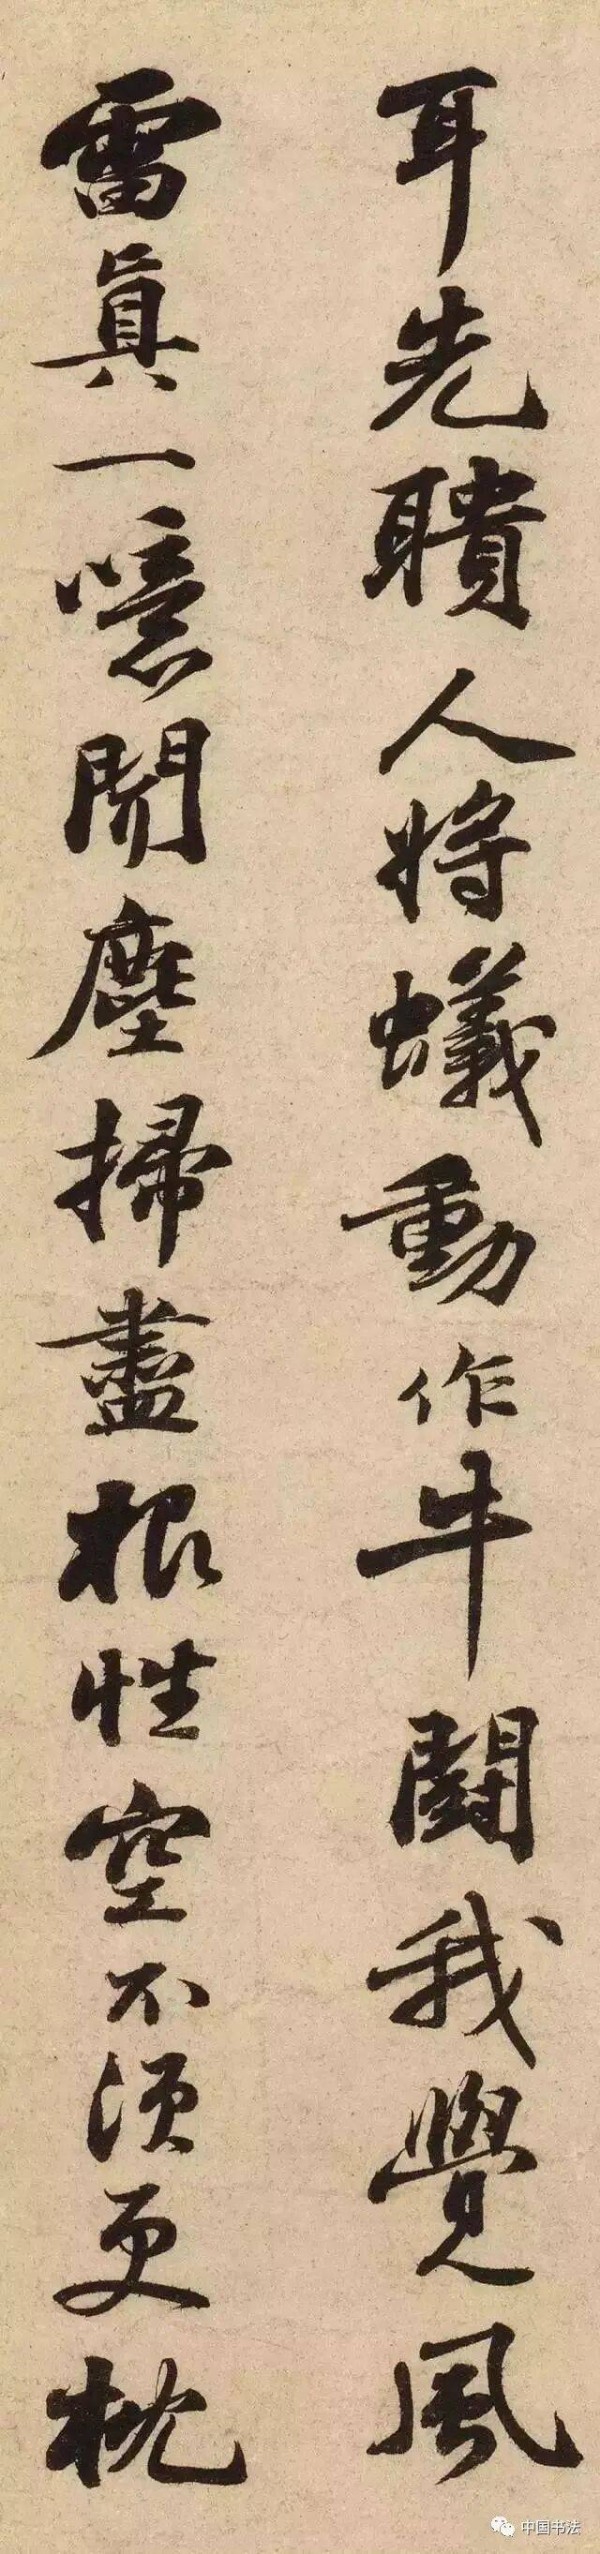 耳先聵人將蟻動作牛鬪我覺風
雷真一噫聞塵掃盡根性空不須更枕
中国书法